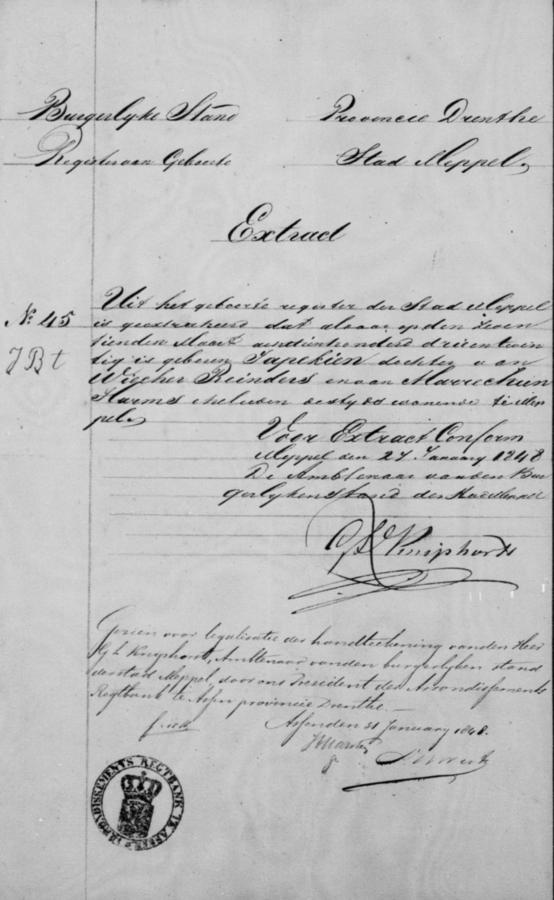 Burgerlyke Stand
Provincie Drenthe
Register van Geboorte
Stad Meppel
Extract
No 45
Uit het geboorte register der Stad Meppel
is geextraheerd dat aldaar op den zeven
tienden Maart achttienhonderd drieentwin
tig is geboren Japekien dochter van
Wiecher Reinders en van Marrechien
Harms ehelieden destyds wonende te Mep
pel
Voor Extract Conform
Meppel den 27 January 1848
De Ambtenaar van den Bur
gerlyken stand der Stad Meppel
G L Kniphorst
Gezien voor legalisatie der handteekening van den Heer
G L Kniphorst, Ambtenaar van den burgerlyken stand
der stad Meppel, door ons President der Arrondissements
Regtbank te Assen provincie Drenthe.
Assen den 31 January 1848.
ARRONDISSEMENTS REGTBANK TE ASSEN